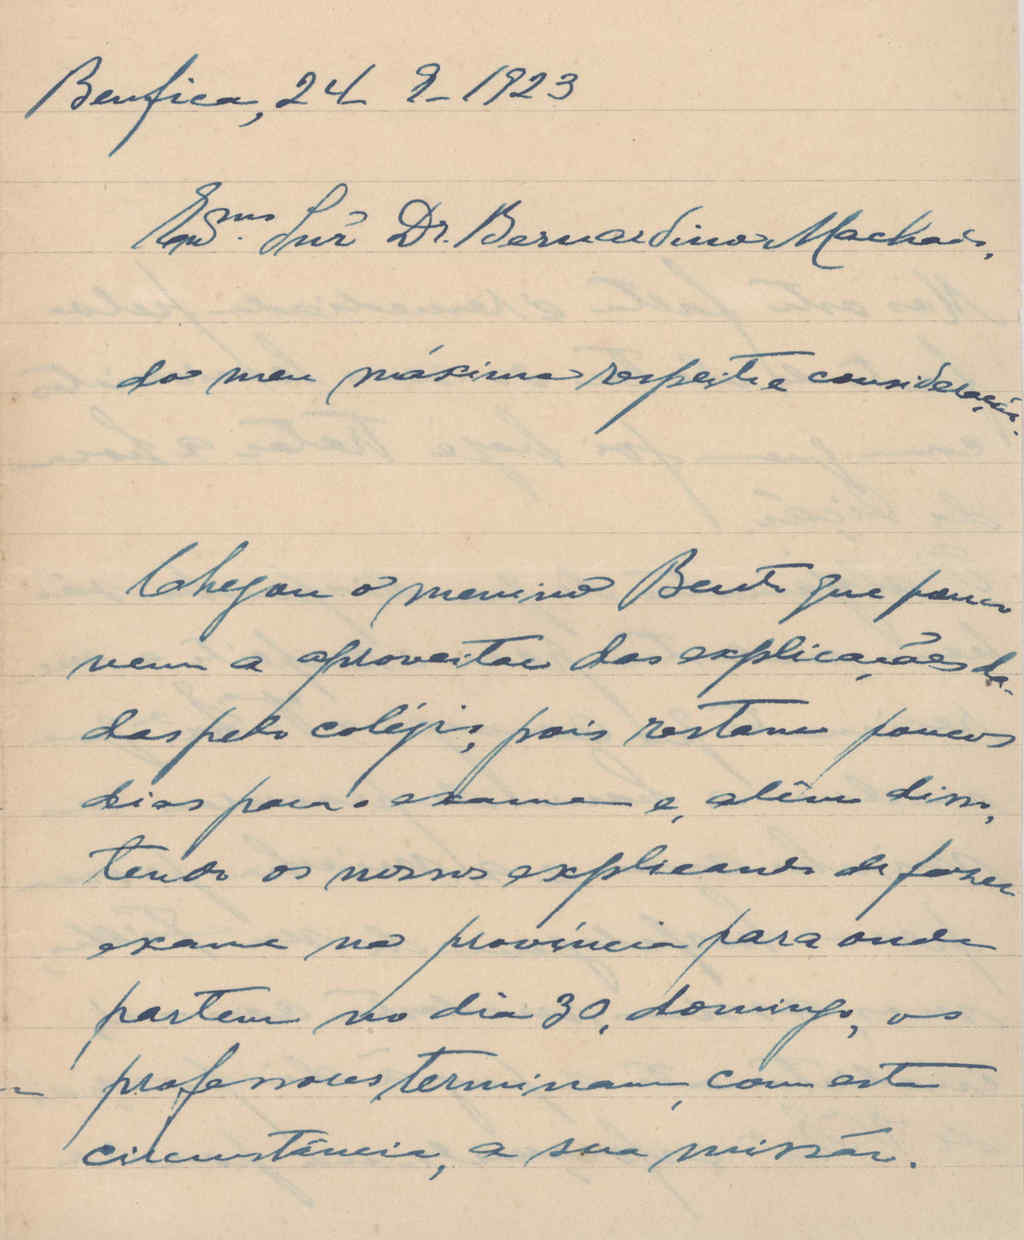 Benfica, 24-9-1923
Exmo. Snr. Dr. Bernardino Machado,
do meu máximo respeito e consideração.
Chegou o menino Bento que pouco
vem a aproveitar das explicações da-
das pelo colégio, pois restam poucos
dias para o exame e, além disso,
tendo os nossos explicandos de fazer
exame na província para onde
partem no dia 30, domingo, os
professores terminam, com esta
circunstância, a sua missão.